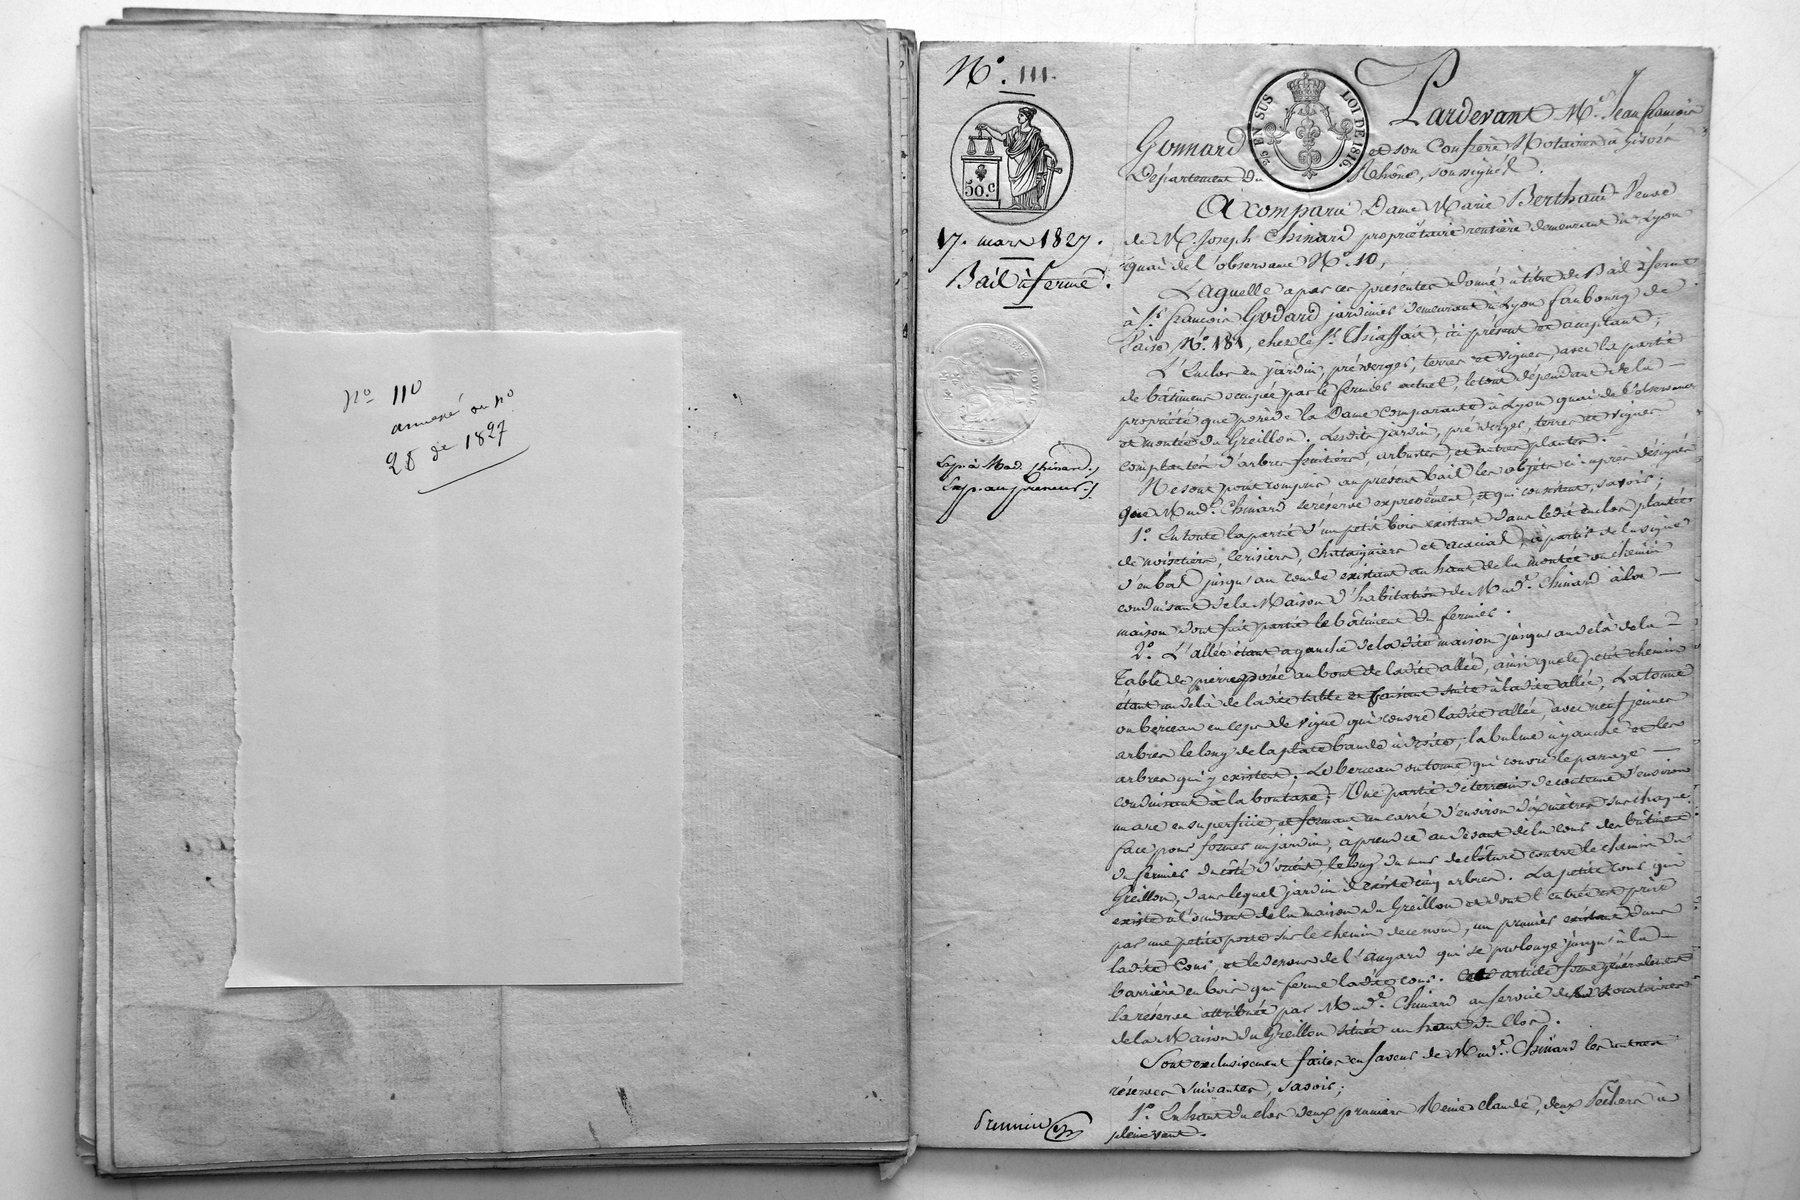 No 110
annexé au no
28 de 1827
No. 111.
50.C
17. mars 1827.
Bail à ferme.
Exp. à Mad. Chinard
Exp. au preneur
EN SUS LOI DE 1816.
Pardevant Me. Jean françois
Gonnard et son Confrère Notaires à Givors
Département du Rhône, soussignés.
A comparu Dame Marie Berthaud Veuve
de M. Joseph Chinard propriétaire rentière demeurant à Lyon
quai de l'observance No. 10,
Laquelle a par ces présentes donné à titre de Bail à ferme
à Sr. françois Godard jardinier demeurant à Lyon faubourg de
Vaise, No. 181, chez le Sr. Chiaffait, ici présent et acceptant;
L'Enclos en jardin, pré verger, terres et vignes, avec la partie
de bâtiment occupée par le fermier actuel, le tout dépendant de la
propriété que possède la Dame comparante à Lyon quai de l'observance
et montée du Greillon. Lesdits jardin, pré verger, terres et vignes
complantés d'arbres fruitiers, arbustes, et autres plantes.
Ne sont point compris au présent bail les objets ci-après désignés
que Made. Chinard se réserve expressément, et qui consistent, savoir;
1o. En toute la partie d'un petit bois existant dans ledit enclos plantée
de noisetiers, cerisiers, chataigniers et acacias, à partir de la vigne
d'en bas jusqu'au coude existant au haut de la montée ou chemin
conduisant de la Maison d'habitation de Made. Chinard à la
maison dont fait partie le bâtiment du fermier.
2o. L'allée étant à gauche de ladite maison jusqu'au delà de la
Table de pierre posée au bout de ladite allée, ainsi que le petit chemin
étant au delà de ladite table et faisant suite à ladite allée, La tonne
ou berceau en ceps de vigne qui couvre ladite allée, avec neuf jeunes
arbres le long de la plate bande à droite, la balme à gauche et les
arbres qui y existent. Le berceau ou tonne qui couvre le passage
conduisant à la boutasse; Une partie de terrain de contenue d'environ
un are en superficie, et formant un carré d'environ dix mètres sur chaque
face pour former un jardin, à prendre au devant de la cour des bâtiment
du fermier du côté d'orient, le long du mur de clôture contre le chemin du
Greillon, dans lequel jardin il existe cinq arbres. La petite cour qui
existe à l'occident de la maison du Greillon et dont l'entrée est prise
par une petite porte sur le chemin de ce nom, un prunier existant dans
ladite Cour, et le dessous de l'angard qui se prolonge jusqu'à la
barrière en bois qui ferme ladite cour. Cet article forme généralement
la réserve attribuée par Made. Chinard au service des Locataires
de la Maison du Greillon située au haut du Clos.
Sont exclusivement faites en faveur de Made. Chinard les autres
réserves suivantes, savoir;
1o. En haut du clos deux pruniers Reine claude, deux Pêchers à
plein vent.